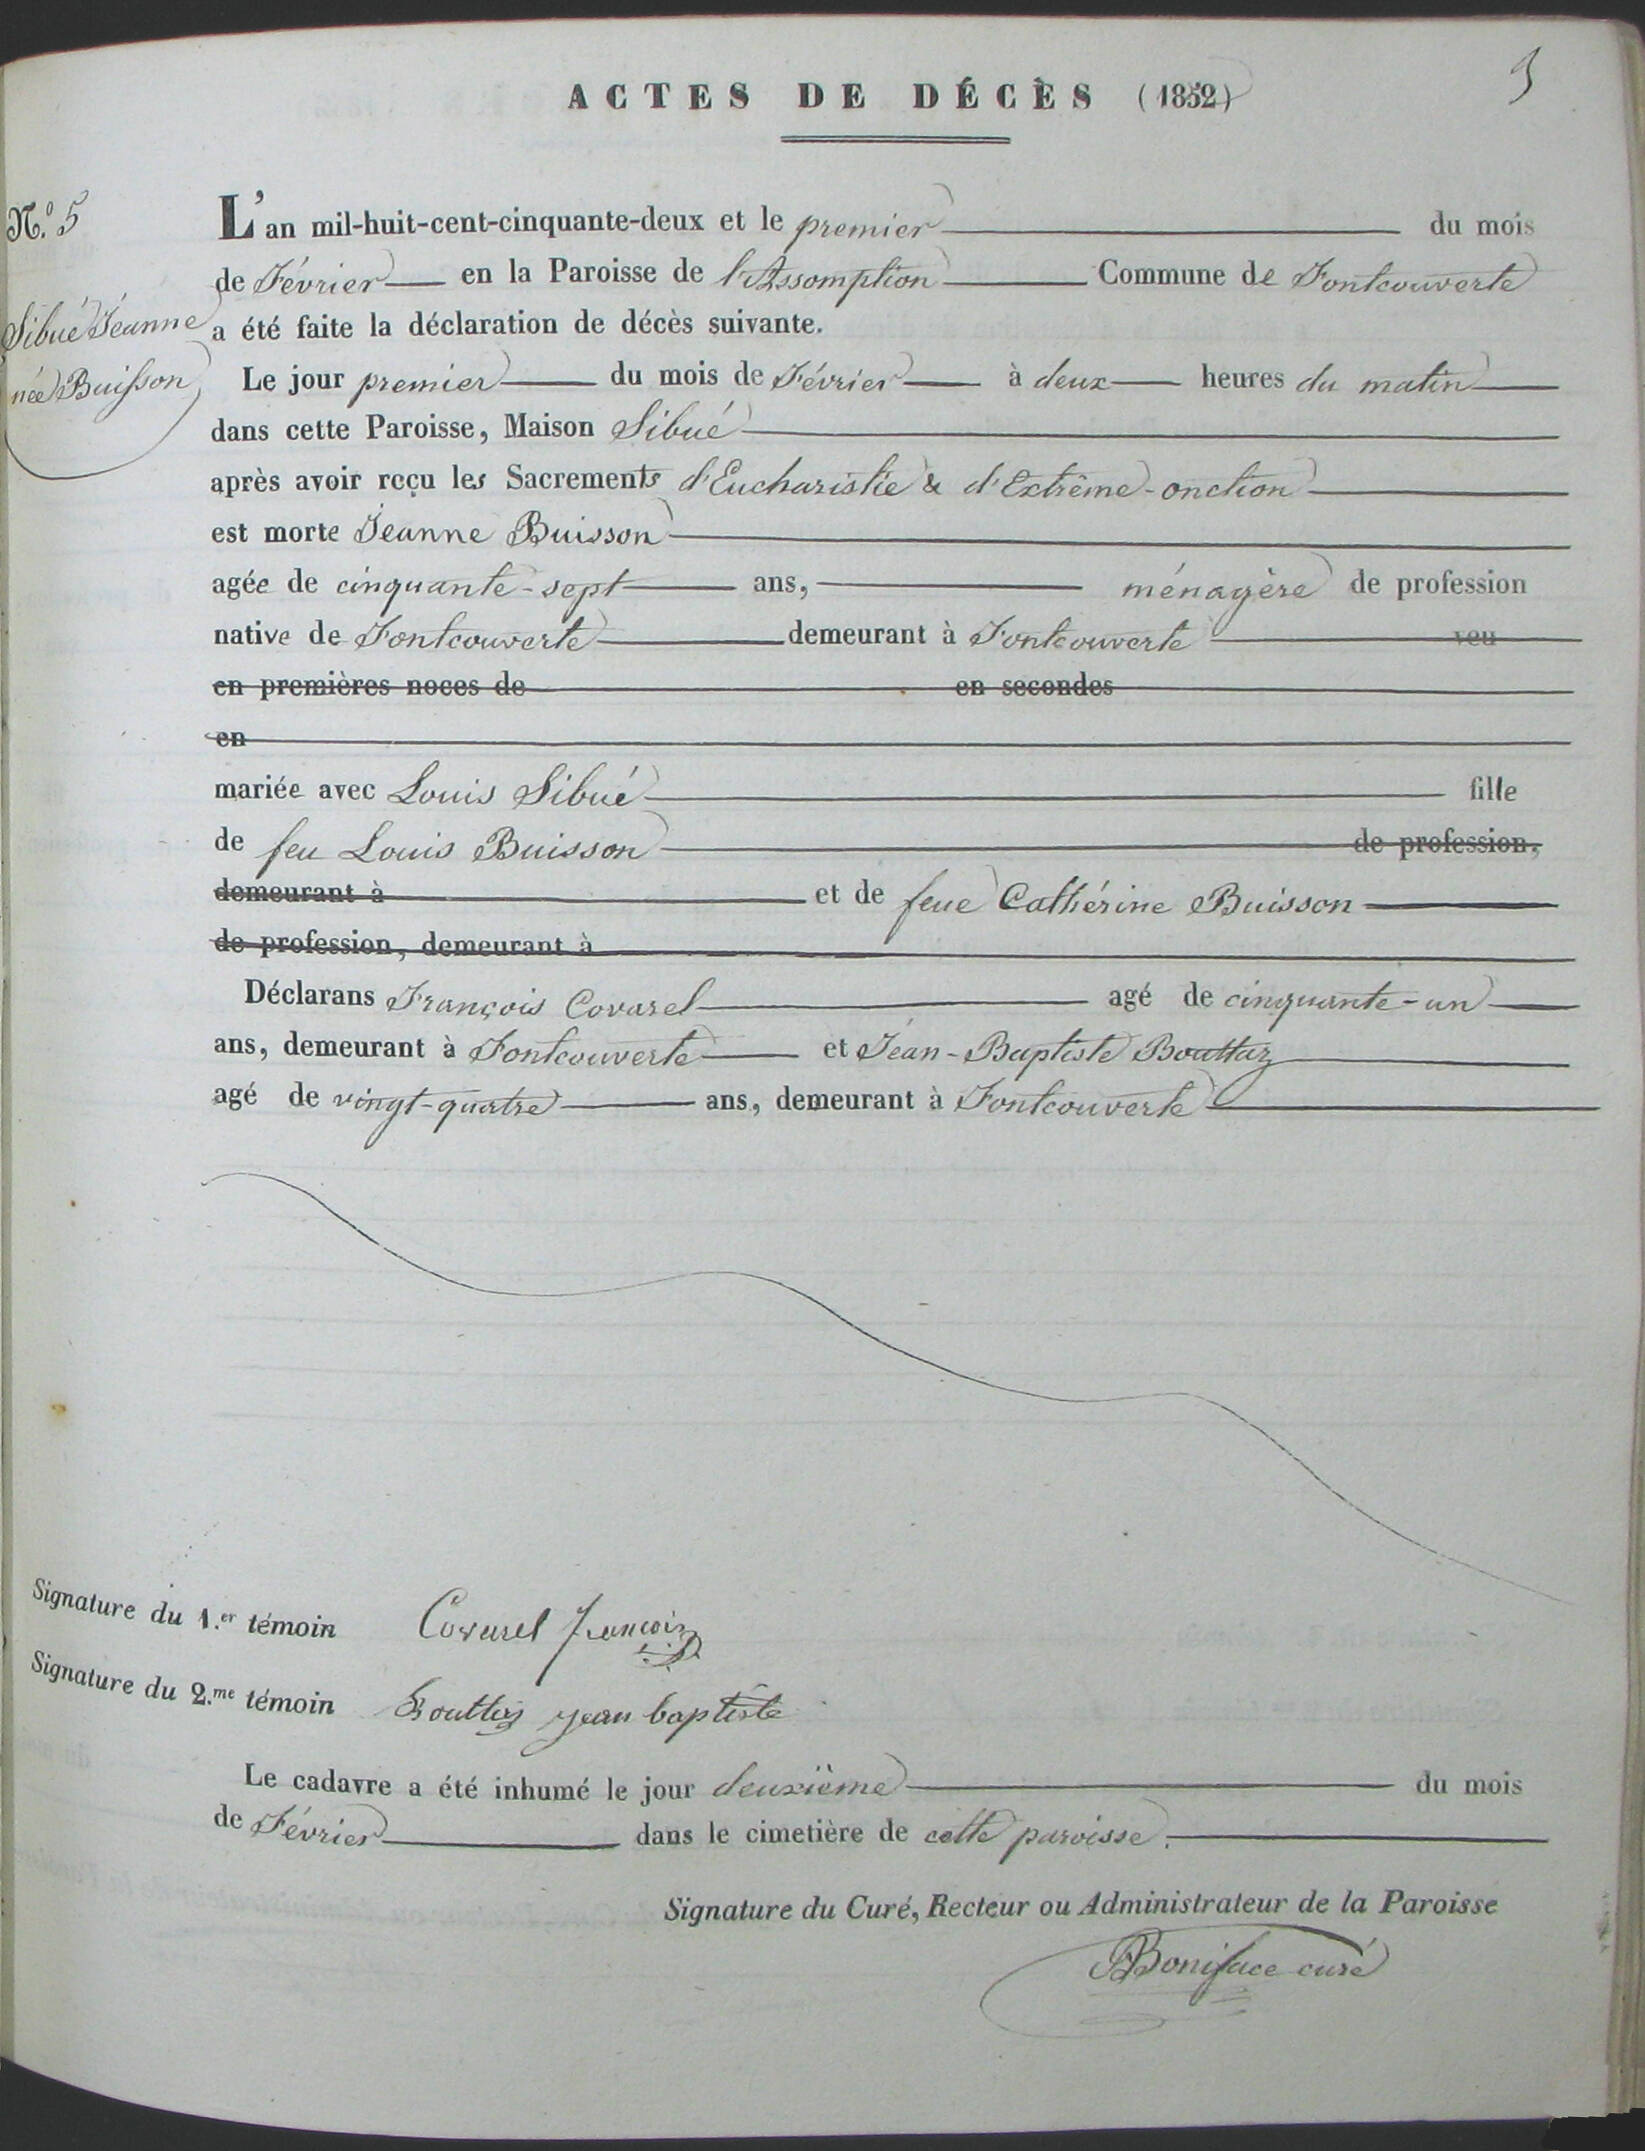 ACTES DE DÉCÈS (1852)
N.º 5
Sibué Jeanne
née Buisson
L'an mil-huit-cent-cinquante-deux et le premier du mois
de Février en la Paroisse de l'Assomption Commune de Fontcouverte
a été faite la déclaration de décès suivante.
Le jour premier du mois de Février à deux heures du matin
dans cette Paroisse, Maison Sibué
après avoir reçu les Sacrements d'Eucharistie & d'Extrême-onction
est morte Jeanne Buisson
agée de cinquante-sept ans, ménagère de profession
native de Fontcouverte demeurant à Fontcouverte veu
en premières noces de en secondes
en
mariée avec Louis Sibué fille
de feu Louis Buisson de profession,
demeurant à et de feue Cathérine Buisson
de profession, demeurant à
Déclarans François Covarel agé de cinquante-un
ans, demeurant à Fontcouverte et Jéan-Baptiste Bouttaz
agé de vingt-quatre ans, demeurant à Fontcouverte
Signature du 1.er témoin Covarel françois
Signature du 2.me témoin Bouttaz jean baptiste
Le cadavre a été inhumé le jour deuxième du mois
de Février dans le cimetière de cette paroisse.
Signature du Curé, Recteur ou Administrateur de la Paroisse
Boniface curé